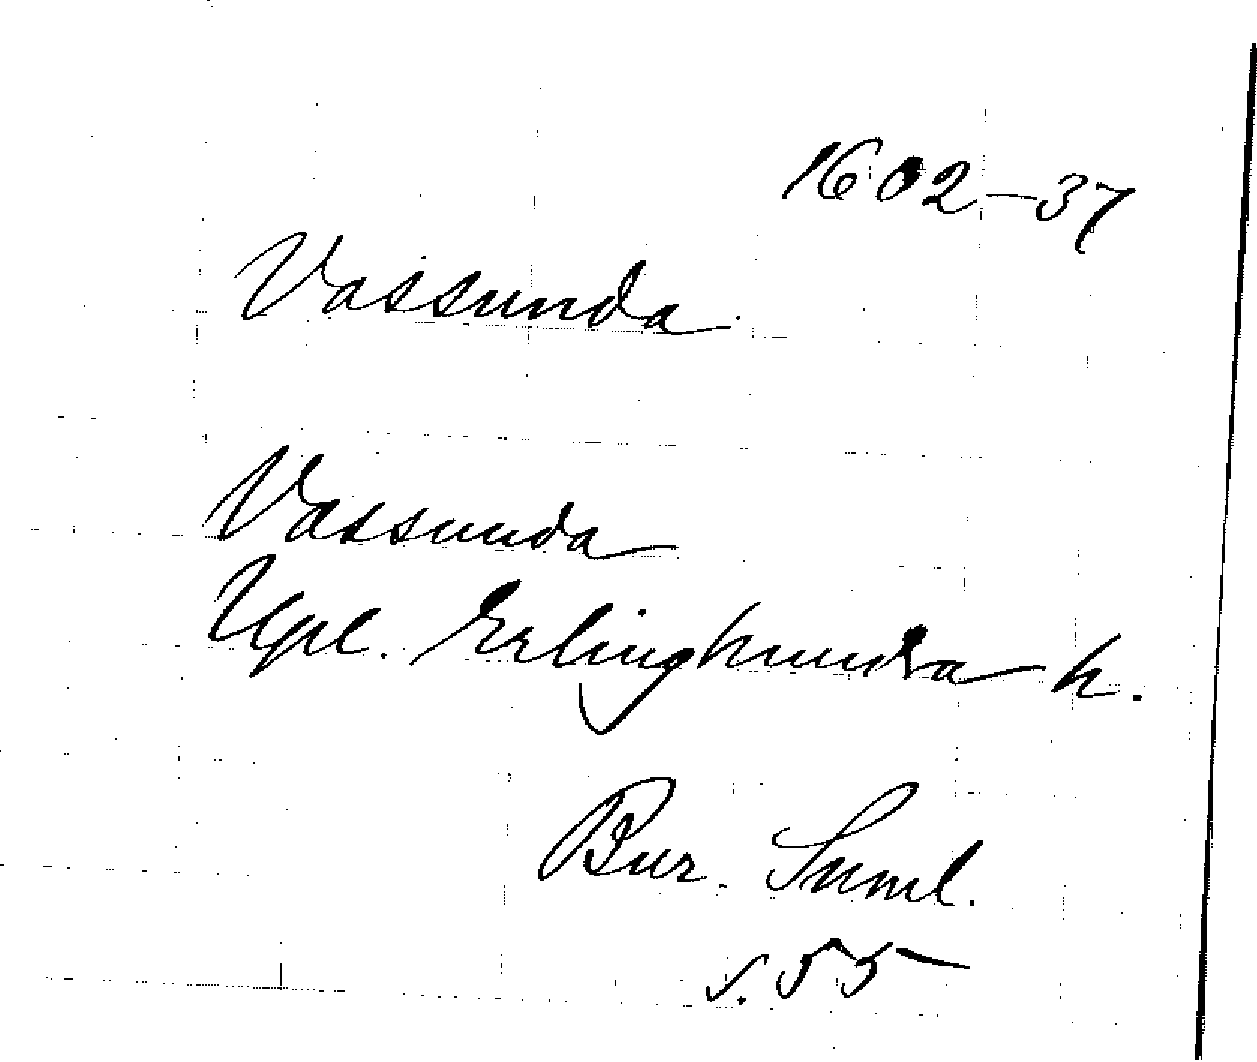 1602-37
Vassunda
Vassunda
Upl. Erlinghundra h.
Bur. Suml.
s. 55